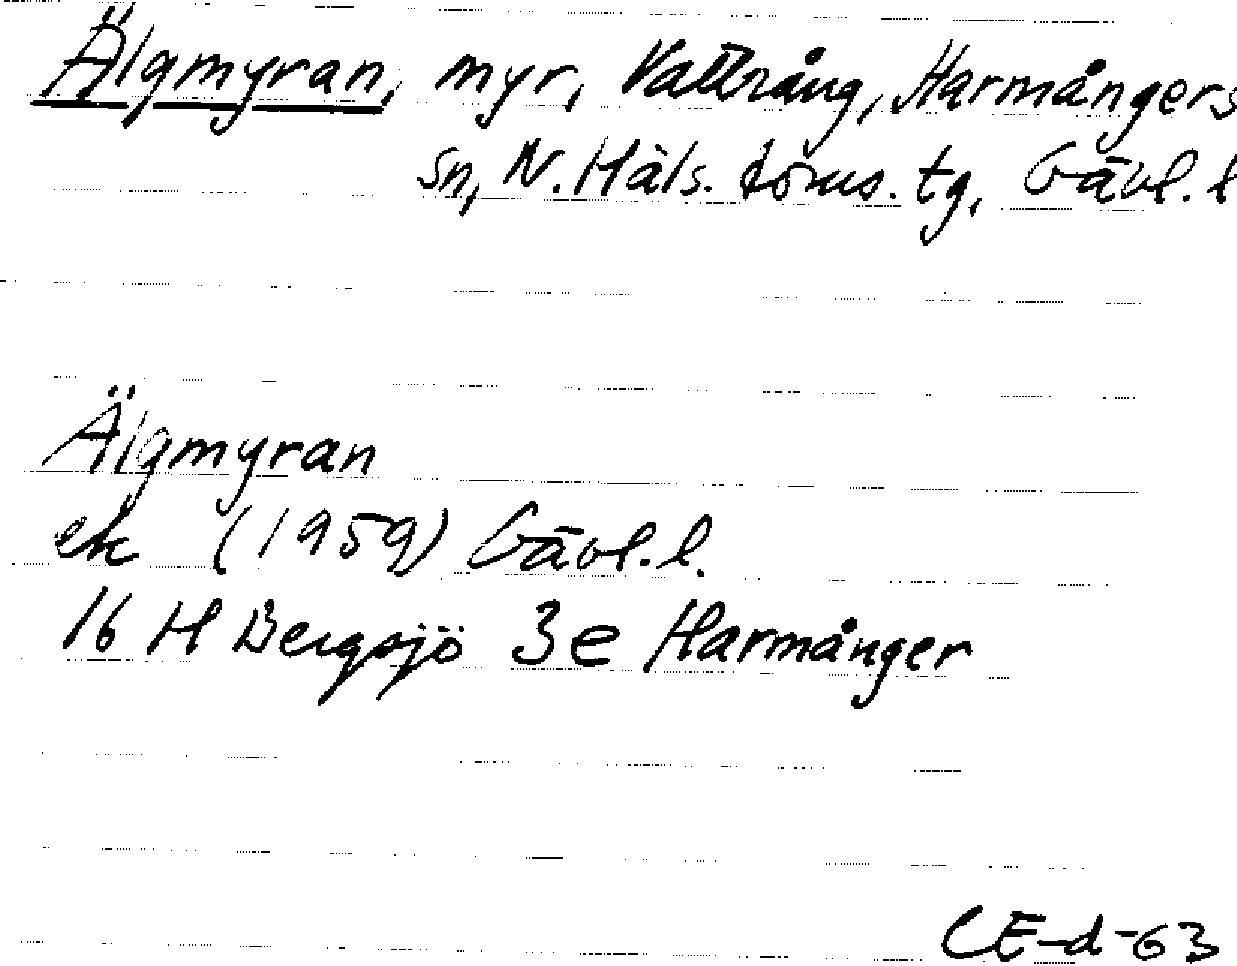 Älgmyran, myr, Vattrång, Harmångers
sn, N. Häls. doms. tg, Gävl. l
Älgmyran
ek (1959) Gävl. l.
16 H Bergsjö 3e Harmånger
CE-d-63